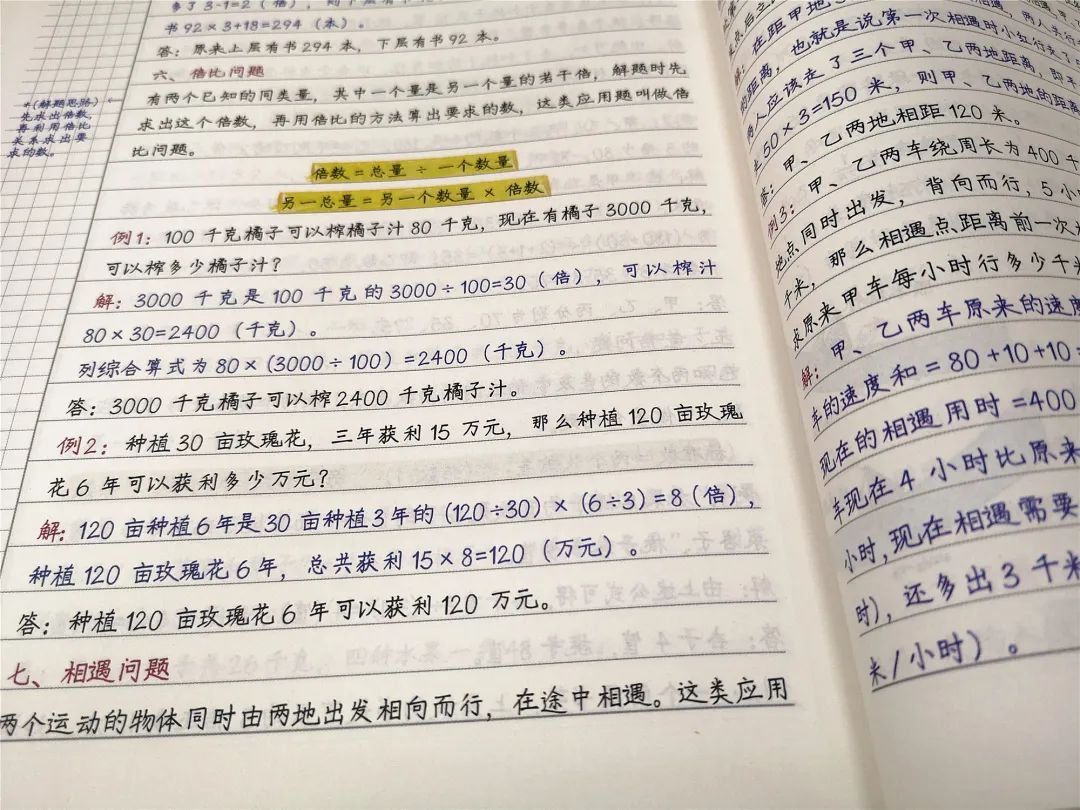 书92×3+18=294（本）。
答：原来上层有书294本，下层有书92本。
六、倍比问题
有两个已知的同类量，其中一个量是另一个量的若干倍，解题时先
求出这个倍数，再用倍比的方法算出要求的数，这类应用题叫做倍
比问题。
*（解题思路）
先求出倍数，
再利用倍比
关系求出要
求的数。
倍数=总量÷一个数量
另一总量=另一个数量×倍数
例1：100千克橘子可以榨橘子汁80千克，现在有橘子3000千克，
可以榨多少橘子汁？
解：3000千克是100千克的3000÷100=30（倍），可以榨汁
80×30=2400（千克）。
列综合算式为80×(3000÷100)=2400（千克）。
答：3000千克橘子可以榨2400千克橘子汁。
例2：种植30亩玫瑰花，三年获利15万元，那么种植120亩玫瑰
花6年可以获利多少万元？
解：120亩种植6年是30亩种植3年的(120÷30)×(6÷3)=8（倍），
种植120亩玫瑰花6年，总共获利15×8=120（万元）。
答：种植120亩玫瑰花6年可以获利120万元。
七、相遇问题
两个运动的物体同时由两地出发相向而行，在途中相遇。这类应用
在距甲地
的距离，也就是说第一次相遇时小红行走了
两人应该走了三个甲、乙两地距离，即
50×3=150米，则甲、乙两地的距离
答：甲、乙两地相距120米。
例3：甲、乙两车绕周长为400千
地点同时出发，背向而行，5小
千米，那么相遇点距离前一次
求原来甲车每小时行多少千米
解：甲、乙两车原来的速度
车的速度和=80+10+10
现在的相遇用时=400
车现在4小时比原来
小时，现在相遇需要
时），还多出3千米
米/小时）。